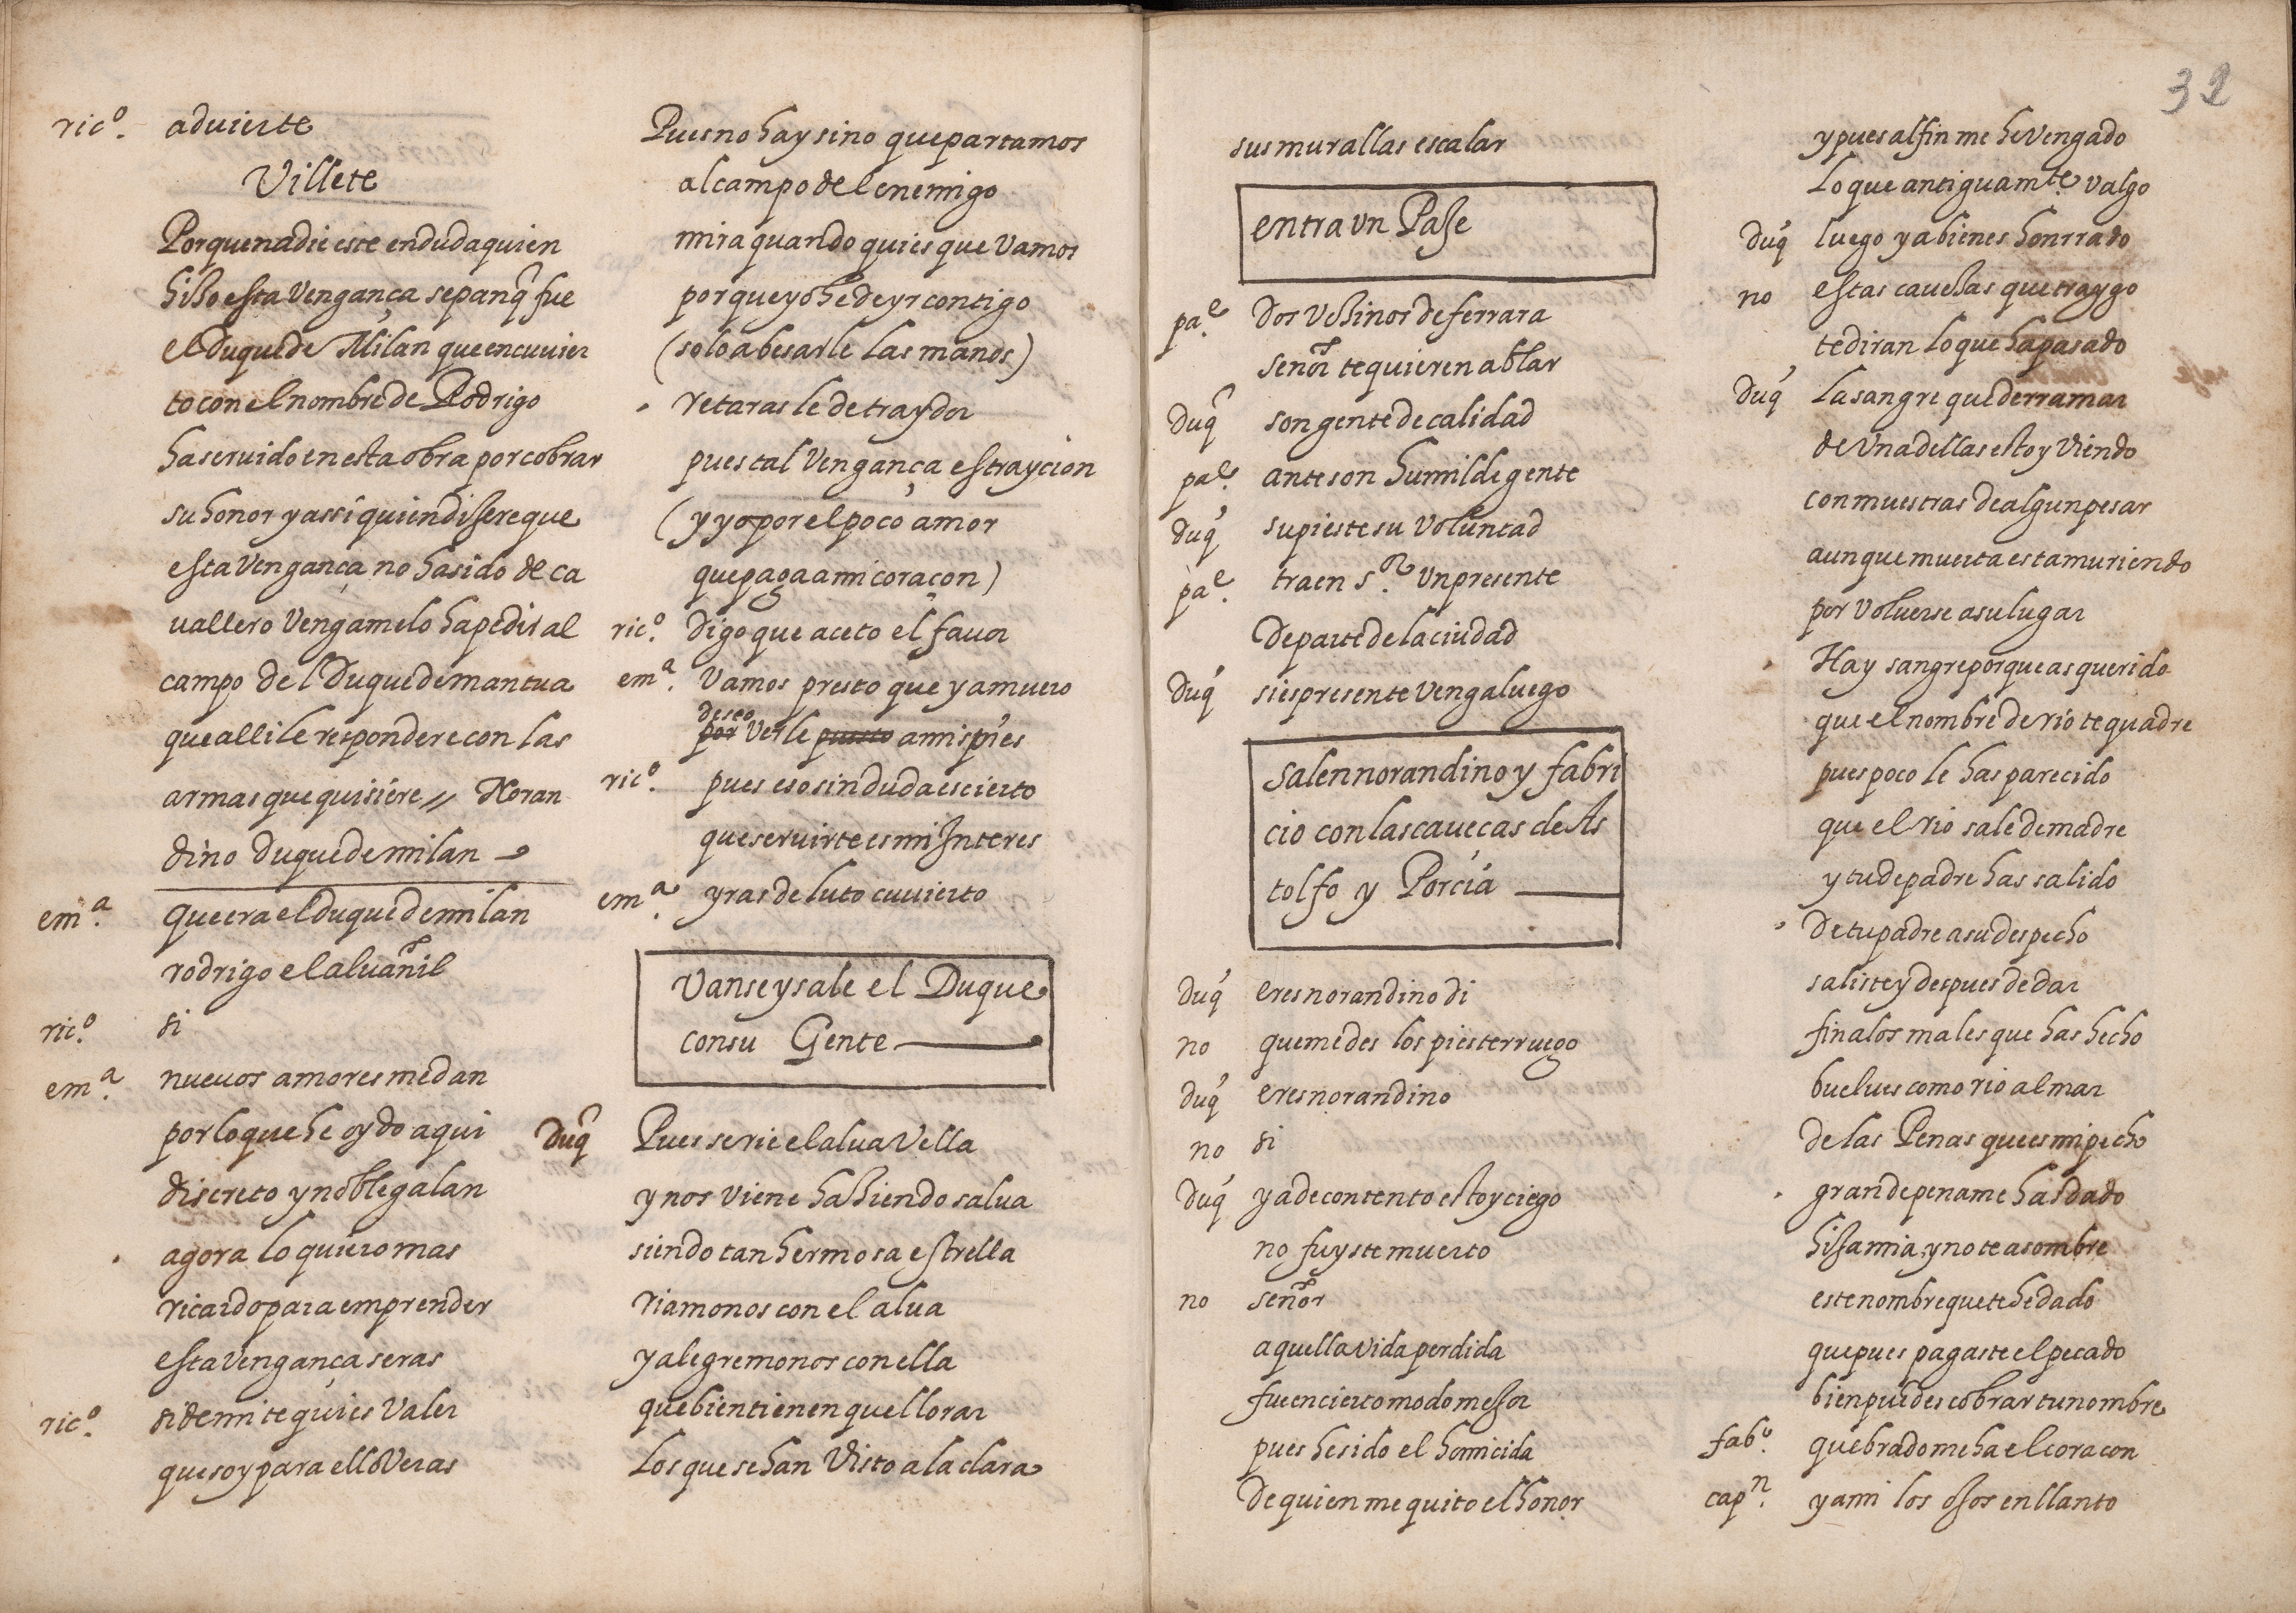 ricº. aduierte
Villete
Porque nadie este en duda quien
hiço esta Vengança sepan q̃ fue
el Duque de Milan que encuuier
to con el nombre de Rodrigo
ha seruido en esta obra por cobrar
su honor y assi quien dijere que
esta Vengança no ha sido de ca
uallero Vengamelo ha pedir al
campo del Duque de mantua
que alli le respondere con las
armas que quisiere // Noran
dino Duque de milan
emª. que era el duque de milan
rodrigo el aluañil
ricº. si
emª. nueuos amores me dan
por lo que he oydo aqui
discreto y noble galan
agora lo quiero mas
ricardo para emprender
esta Vengança seras
ricº. si de mi te quies Valer
que soy para ello Veras
Pues no hay sino que partamos
al campo del enemigo
mira quando quies que Vamos
porque yo he de yr contigo
(solo a besarle las manos)
retarasle de traydor
pues tal Vengança es traycion
(y yo por el poco amor
que paga a mi coraçon)
ricº. digo que aceto el fauor
emª. Vamos presto que ya muero
deseo
por Verle puesto a mis pies
ricº. pues eso sin duda es cierto
que seruirte es mi Interes
emª. yras de luto cuuierto
Vanse y sale el Duque
con su Gente
Duq̃ Pues se rie el alua Vella
y nos viene haziendo salua
siendo tan hermosa estrella
riamonos con el alua
y alegremonos con ella
que bien tienen que llorar
Los que se han Visto a la clara
32
sus murallas escalar
entra Vn Paje
paᵉ. Dos Vezinos de ferrara
señor te quieren ablar
Duq̃ son gente de calidad
paᵉ. antes son humilde gente
duq̃ supiste su Voluntad
paᵉ. traen sʳ. Vn presente
De parte de la ciudad
Duq̃ si es presente Venga luego
salen norandino y fabri
cio con las caueças de As
tolfo y Porcia
duq̃ eres norandino di
no que me des los pies te rruego
duq̃ eres norandino
no si
Duq̃ ya de contento estoy ciego
no fuyste muerto
no señor
aquella vida perdida
fue en cierto modo mejor
pues he sido el homicida
De quien me quito el honor
y pues al fin me he Vengado
Lo que antiguamᵗᵉ valgo
duq̃ luego ya bienes honrrado
no estas cauesas que traygo
te diran lo que ha pasado
duq̃ La sangre que derramar
de Vna dellas estoy Viendo
con muestras de algun pesar
aunque muerta esta muriendo
por Voluerse a su lugar
Hay sangre porque as querido
que el nombre de rio te quadre
pues poco le has parecido
que el rio sale de madre
y tu de padre has salido
De tu padre a su despecho
saliste y despues de dar
fin a los males que has hecho
buelues como rio al mar
de las Penas que es mi pecho
grande pena me has dado
hija mia, y no te asombre
este nombre que te he dado
que pues pagaste el pecado
bien puedes cobrar tu nombre
fabº. quebrado me ha el coracon
capⁿ. y a mi los ojos en llanto